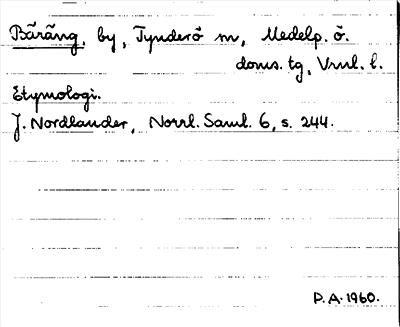 Bäräng, by, Tynderö sn, Medelp. ö.
doms. tg, Vrnl. l.
Etymologi.
J. Nordlander, Norrl. Saml. 6, s. 244.
P.A. 1960.